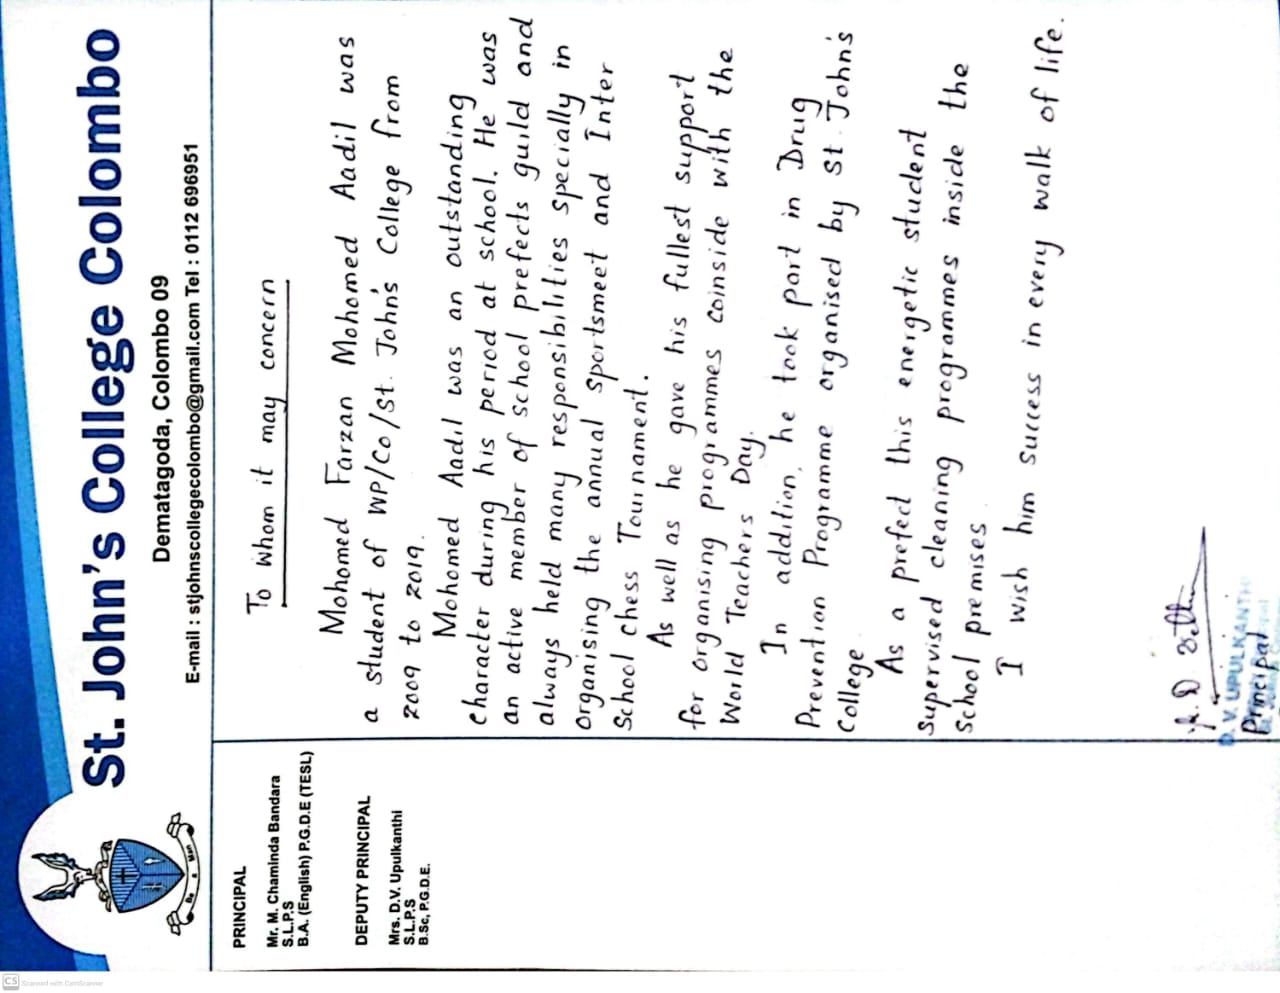 CS Scanned with CamScanner
St. John's College Colombo
Dematagoda, Colombo 09
E-mail : stjohnscollegecolombo@gmail.com Tel : 0112 696951
Be a Man
PRINCIPAL
Mr. M. Chaminda Bandara
S.L.P.S
B.A. (English) P.G.D.E (TESL)
DEPUTY PRINCIPAL
Mrs. D.V. Upulkanthi
S.L.P.S
B.Sc, P.G.D.E.
To whom it may concern
Mohomed Farzan Mohomed Aadil was
a student of WP/Co/St. John's College from
2009 to 2019.
Mohomed Aadil was an outstanding
character during his period at school. He was
an active member of school prefects guild and
always held many responsibilities specially in
organising the annual sportsmeet and Inter
School chess Tournament.
As well as he gave his fullest support
for organising programmes coinside with the
World Teachers Day.
In addition, he took part in Drug
Prevention Programme organised by St. John's
College
As a prefect this energetic student
supervised cleaning programmes inside the
School premises
I wish him success in every walk of life.
D. V. UPULKANTHI
Principal